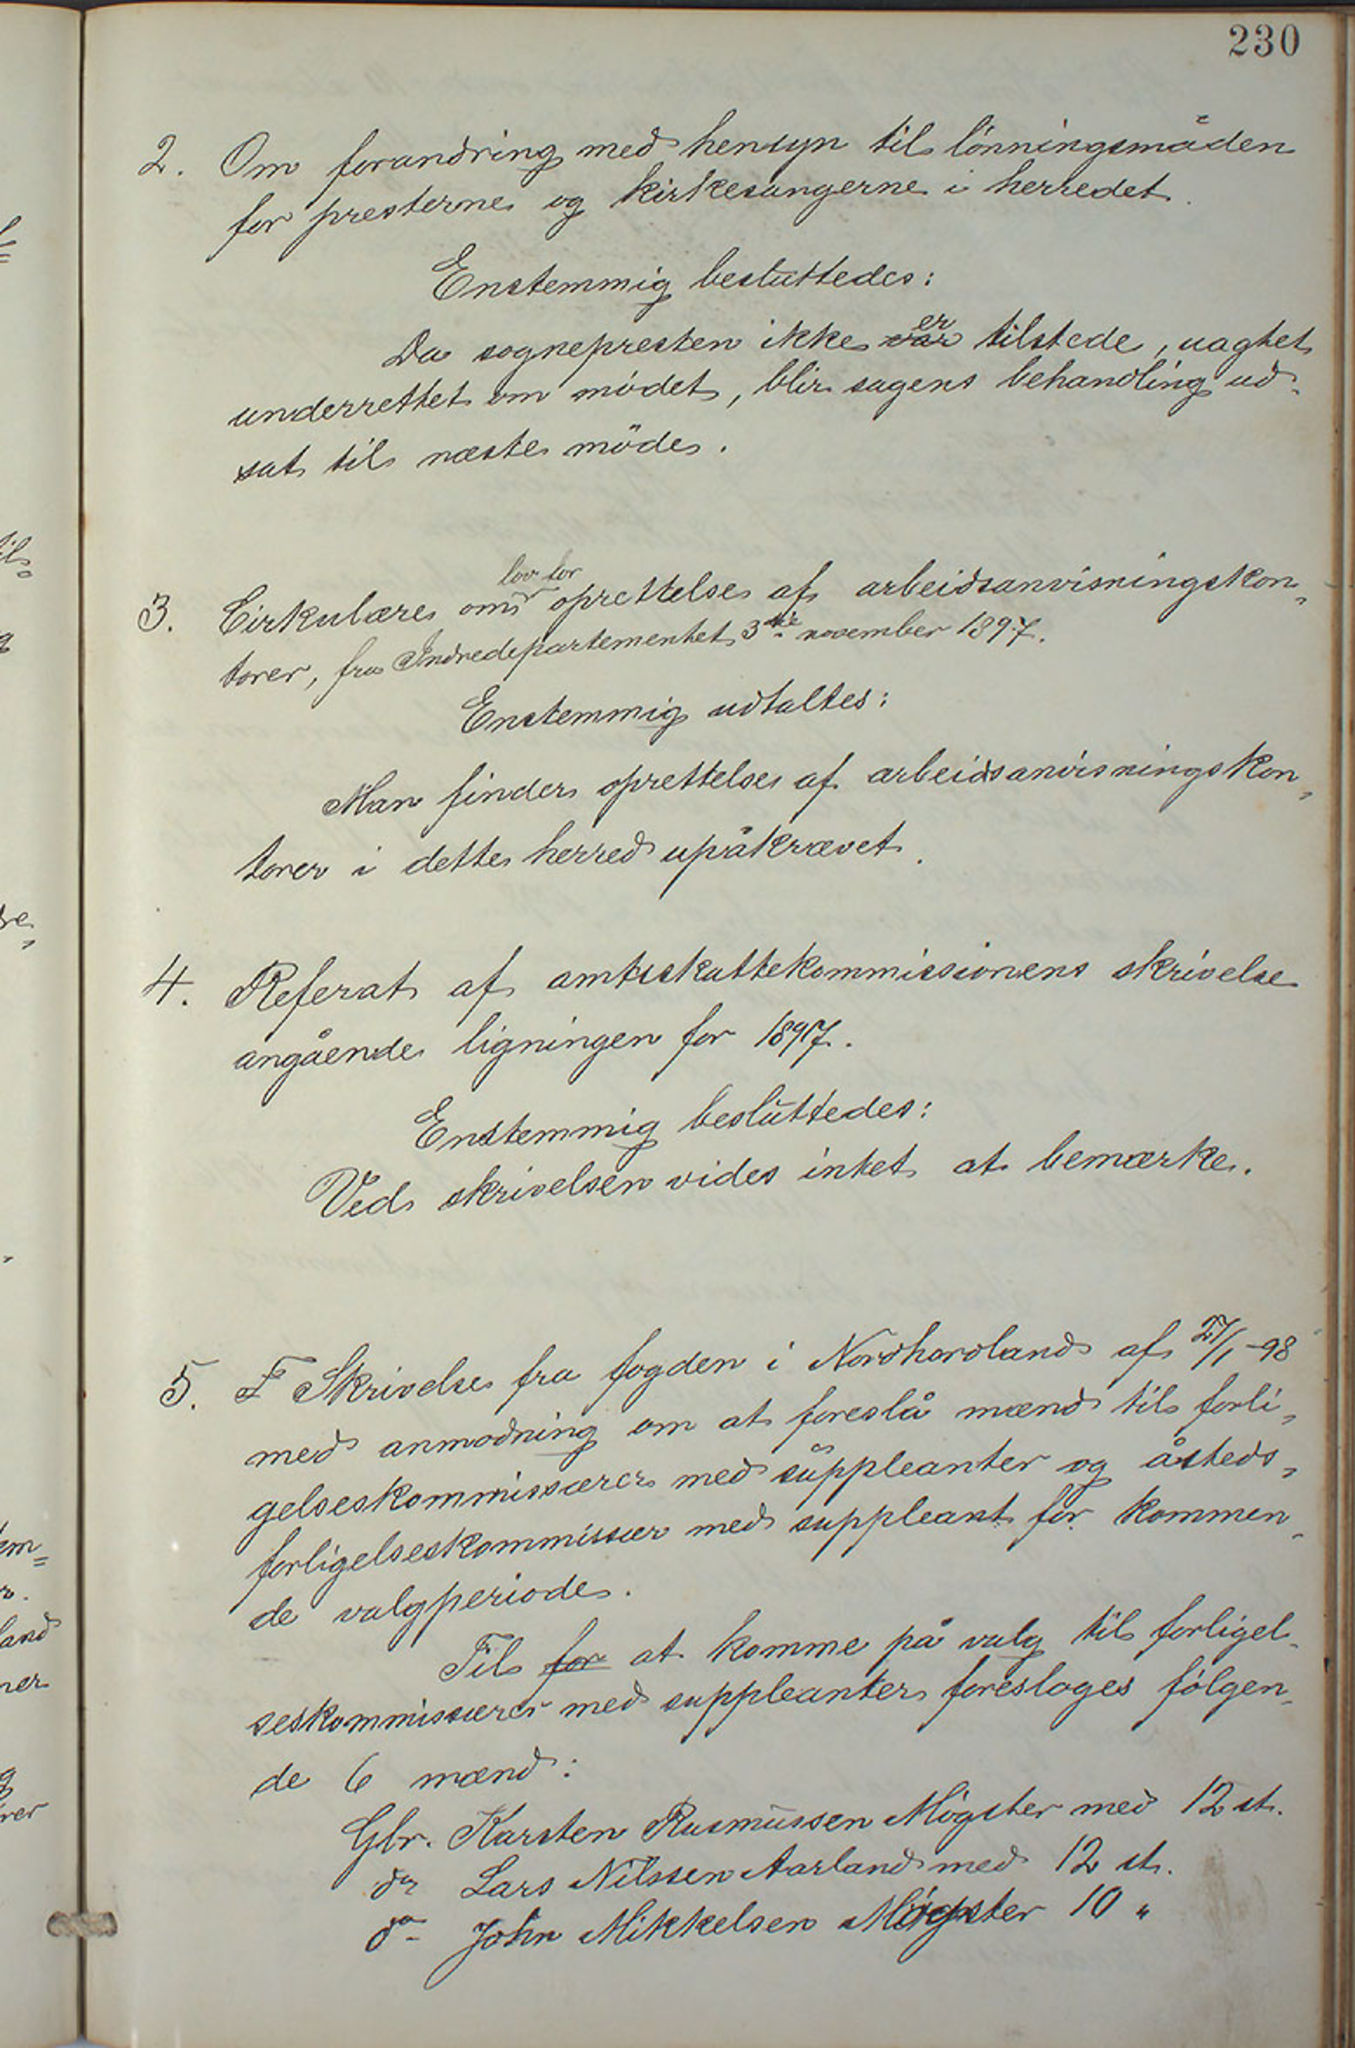 230
2. Om forandring med hensyn til lönningsmåden
for presterne og kirkesangerne i herredet.
Enstemmig besluttedes:
Da sognepresten ikke var er tilstede, uagtet
underrettet om mödet, blir sagens behandling ud-
sat til næste möde.
lov for
3. Cirkulære om oprettelse af arbeidsanvisningskon-
torer, fra Indredepartementet 3die november 1897.
Enstemmig udtaltes:
Man finder oprettelse af arbeidsanvisningskon-
torer i dette herred upåkrævet.
4. Referat af amtsskattekommissionens skrivelse
angående ligningen for 1897.
Enstemmig besluttedes:
Ved skrivelsen vides intet at bemærke.
5. Skrivelse fra fogden i Nordhordland af 27/1 -98
med anmodning om at foreslå mænd til forli-
gelseskommissærer med suppleanter og åsteds-
forligelseskommissær med suppleant for kommen-
de valgperiode.
Til for at komme på valg til forligel-
seskommissærer med suppleanter foresloges fölgen-
de 6 mænd:
Gbr. Karsten Rasmussen Mögster med 12 st.
do Lars Nilssen Aarland med 12 st.
do John Mikkelsen Mögster 10 "